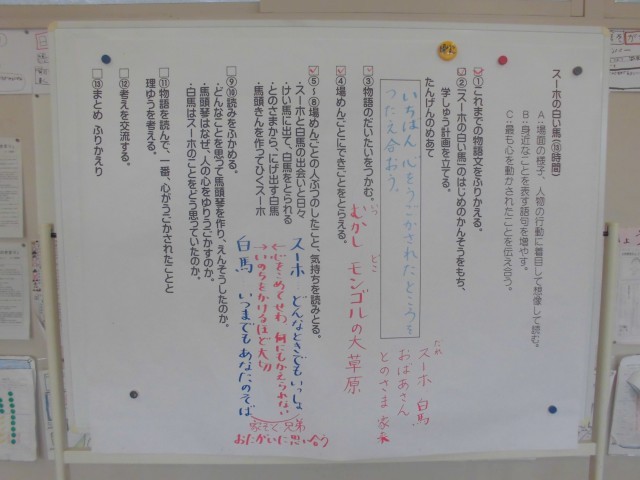 スーホの白い馬(13時間)
A:場面の様子、人物の行動に着目して想像して読む。
B:身近なことを表す語句を増やす。
C:最も心を動かされたことを伝え合う。
①これまでの物語文をふりかえる。
②「スーホの白い馬」のはじめのかんそうをもち、
学しゅう計画を立てる。
たんげんのめあて
いちばん心をうごかされたところを
つたえ合おう。
③物語のだいたいをつかむ。
いつ
むかし
どこ
モンゴルの大草原
だれ
スーホ 白馬
おばあさん
とのさま 家来
④場めんごとにできごとをとらえる。
⑤~⑧場めんごとの人ぶつのしたこと、気持ちを読みとる。
・スーホと白馬の出会いと日々
・けい馬に出て、白馬をとられる
・とのさまから、にげ出す白馬
・馬頭きんを作ってひくスーホ
スーホ…どんなときでもいっしょ
←心をこめてせわ 何にもかえられない
→いのちをかけるほど大切
白馬 いつまでもあなたのそば
家ぞく 兄弟
おたがいに思い合う
⑨⑩読みをふかめる。
・どんなことを思って馬頭琴を作り、えんそうしたのか。
・馬頭琴はなぜ、人の心をゆりうごかすのか。
・白馬はスーホのことをどう思っていたのか。
⑪物語を読んで、一番、心がうごかされたことと
理ゆうを考える。
⑫考えを交流する。
⑬まとめ ふりかえり